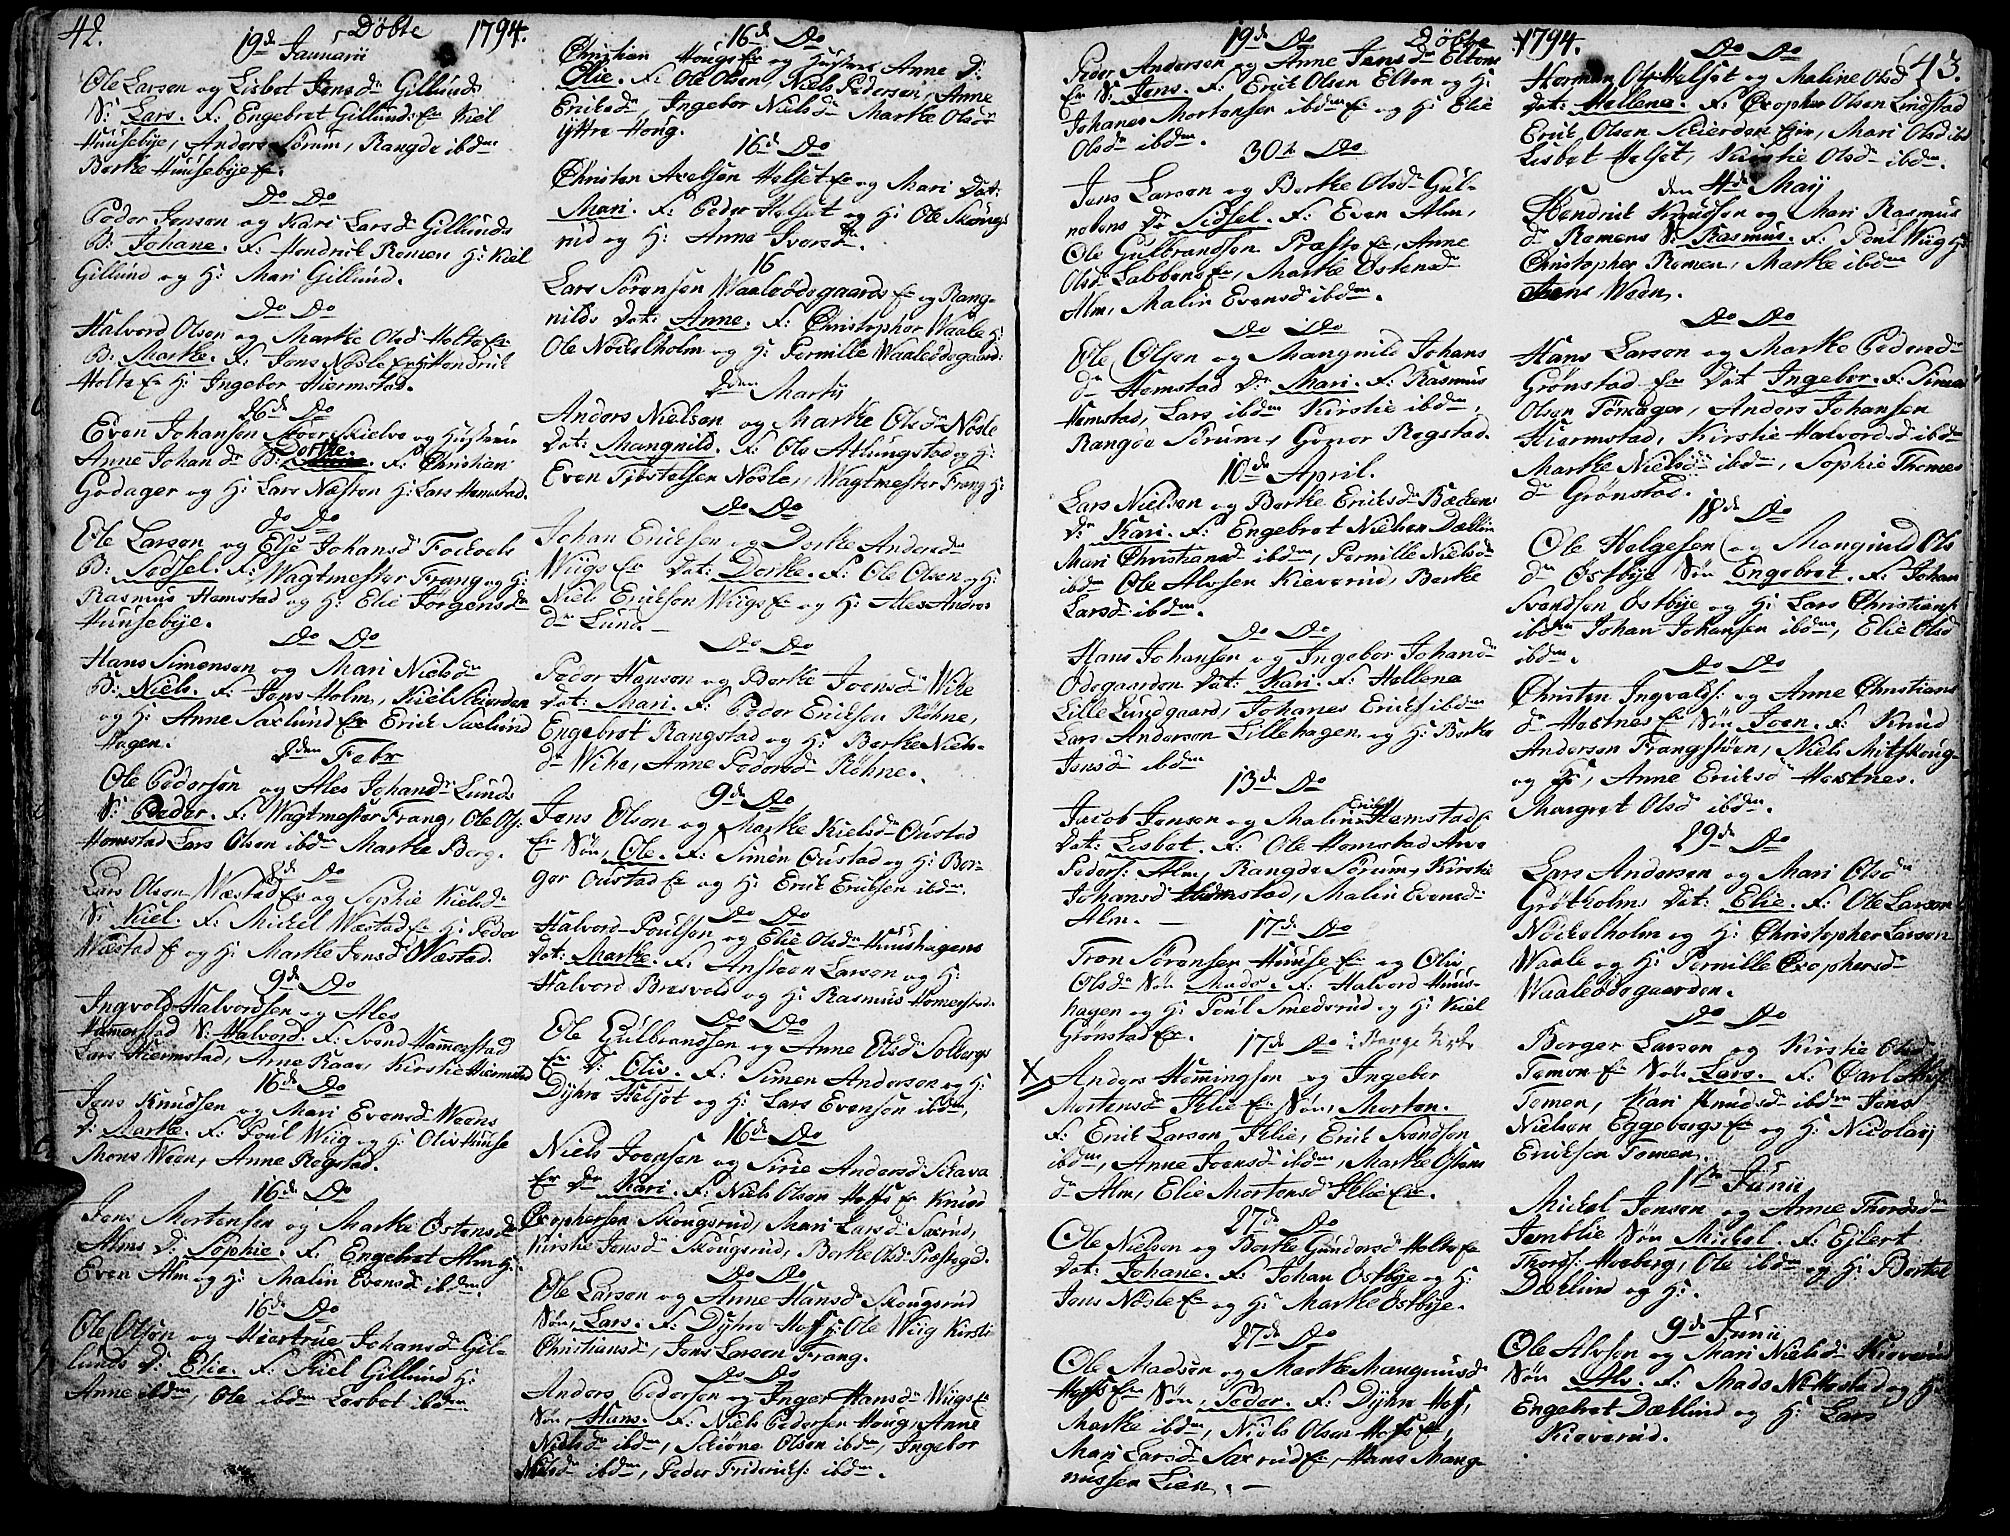 42. Döbte 1794.
19de Januarii
Ole Larsen og Lisbet Jensdr Gillunds
S: Lars. F: Engebret Gillunds Er Kiel
Huusebÿe, Anders Sörum, Rangde ibdm
Berthe Huusebÿe Er.
Do Do
Peder Jensen og Kari Larsd Gillunds
B: Johane. F: Hendrik Romen H: Kiel
Gillund og H: Mari Gillund.
Do Do
Halvord Olsen og Marthe Olsd Holte Er
B: Marthe. F: Jens Nösle Er og Hendrik
Holte Er H: Ingebor Hiermstad.
26de Do
Even Johansen og Hustrue
Anne Johandr B: Dorthe. F: Christian
Godager og H: Lars Næsten H: Lars Hemstad.
Do Do
Ole Larsen og Else Johansd
B: Sidsel. F: Wagtmester Frang og H:
Rasmus Hemstad og H: Elie Jörgensdr
Huusebÿe.
Do Do
Hans Simensen og Mari Nielsdr
B: Niels. F: Jens Holm, Kiel Skierden
og H: Anne Saxlund Er Erick Saxlund
Hagen.
2den Febr
Ole Pedersen og Ales Johandr Lunds
S: Peder. F: Wagtmester Frang, Ole Ols:
Hemstad Lars Olsen ibdm Marthe Berg.
8de Do
Lars Olsen Wæstad Er og Sophie Kielsdr
S: Kiel. F: Mickel Wæstad Er H: Peder
Wæstad Er og H: Marthe Jensd Wæstad.
9de Do
Ingvold Halvordsen og Ales
Hamerstad S: Halvord. F: Svend Hammerstad
Lars Hiermstad, Anne Raae, Kirstie Hiermstad
16de Do
Jens Knudsen og Mari Evensdr Weens
D: Marthe. F: Poul Wiig og H: Oliv Huuse
Mons Ween, Anne Rogstad.
16de Do
Jens Mortensen og Marthe Östensdr
Alms D: Sophie. F: Engebret Alm H:
Even Alm og H: Malin Evensd ibdm.
16de Do
Ole Olsen og Hiertrue Johansd Gil-
lunds D: Elie. F: Kiel Gillund H:
Anne ibdm, Ole ibdm Lesbet ibdm
16de Do
Christian Hougs Er og Hustrue Anne D:
Elie. F: Ole Olsen, Niels Pedersen, Anne
Ericksdr, Ingebor Nielsdr Marthe Olsdr
ÿttre Houg.
16de Do
Christen Axelsen Helset Er og Mari Dat:
Mari. F: Peder Helset og H: Ole Skönnes
rud og H: Anne Iversdr.
16
Lars Sörensen Waaleödegaards Er og Rang-
nilds Dat: Anne. F: Christopher Waale H:
Ole Nöckelholm og H: Pernille Waaleödegaard:
2den Martÿ
Anders Nielsen og Marthe Olsdr Nösle
Dat: Mangnild. F: Ole Atlungstad og H:
Even Töstelsen Nösle, Wagtmester Frang H:
Do Do
Johan Ericksen og Dorthe Andersdr
Wiigs Er Dat: Dorthe. F: Ole Olsen og H:
Niels Ericksen Wiigs Er og H: Ales Anders
dr Lund.
Do Do
Peder Hansen og Berthe Joensdr Wihe
Dat: Mari. F: Peder Ericksen Röhne,
Engebret Rangstad og H: Berthe Niels-
dr Wihe, Anne Pedersdr Röhne.
9de Do
Jens Olsen og Marthe Kielsdr Oustad
Er Sön, Ole. F: Simen Oustad og H: Bor-
ger Oustad Er og H: Erick Ericksen ibdm.
Do Do
Halvord Poulsen og Elie Olsdr Huushagens
Dat: Marthe. F: Ansteen Larsen og H:
Halvord Bresvold og H: Rasmus Homerstad.
Do Do
Ole Gulbrandsen og Anne Olsd Solbergs
Er D: Oliv. F: Simen Andersen og H:
Dÿhre Helset og H: Lars Evensen ibdm,
16de Do
Niels Joensen og Sirie Andersd Skava
Er Dr Kari. F: Niels Olsen Hoffs Er Knud
Oxophersen Skougsrud, Mari Larsd Saxrud,
Kirstie Jensdr Skougsrud, Berthe Olsd Præstegd.
Do Do
Ole Larsen og Anne Hansd Skougsrud
Sön, Lars. F: Dÿhre Hoff H: Ole Wiig Kirsti
Christiansd, Jens Larsen Frang.
Do Do
Anders Pedersen og Inger Hansdr Wiigs Er
Sön Hans. F: Niels Pedersen Houg, Anne
Nielsdr ibdm, Skiöne Olsen ibdm, Ingebor
Nielsdr ibdm, Peder Fridericks: ibdm.
19de Do Döbte 1794. 43.
Peder Andersen og Anne Jensdr Eltons
Er S: Jens. F: Erick Olsen Elton og H:
Johanes Mortensen ibdm Er og H: Elie
Olsdr ibdm.
30te Do
Jens Larsen og Berthe Olsdr Gul-
notens Dr Sidsel. F: Even Alm,
Ole Gulbrandsen Præste Er, Anne
Olsd Labbens Er, Marthe Östensdr
Alm, Malin Evensd ibdm.
Do Do
Ole Olsen og Mangnild Johans
dr Hemstad D: Mari. F: Rasmus
Hemstad, Lars ibdm Kirstie ibdm,
Rangde Sörum, Gunor Rogstad.
10de April.
Lars Nielsen og Berthe Ericksdr Beckens
Dr Kari. F: Engebret Nielsen Dællin
Mari Christiansd ibdm, Pernille Nielsdr
ibdm Ole Alvsen Kieverud, Berthe
Larsdr ibdm.
Do Do
Hans Johansen og Ingebor Johandr
Odegaarden Dat: Kari. F: Hellena
Lille Lundgaard, Johanes Ericks ibdm
Lars Andersen Lillehagen og H: Berthe
Jensd ibdm
13de Do
Jacob Jensen og Malin Ericksd Hemstad Er
Dat: Lisbet. F: Ole Hemstad Arne
Peders: Alm, Rangde Sörum, Kirstie
Johansd Hemstad, Malin Evensd
Alm.
17de Do
Tron Sörensen Huuse Er og Oliv
Olsdr Sön Mads. F: Halvord Huus-
hagen og H: Poul Smedsrud og H: Kiel
Grönstad Er.
17de Do i Stange Kirke
X Anders Hemmingsen og Ingebor
Mortensdr Ilie Er Sön, Morten.
F: Erick Larsen Ilie, Erick Svendsen
ibdm, Anne Joensdr ibdm, Marthe Östens
dr Alm, Elie Mortensd Ilie Er.
27de Do
Ole Nielsen og Berthe Gundersd Holte Er
Dat: Johane. F: Johan Östbÿe og H:
Jens Nösle Er og H: Marthe Östbÿe.
27de Do
Ole Madsen og Marthe Mangnusdr
Hoffs Er Sön, Peder. F: Dÿhre Hoff,
Marthe ibdm, Niels Olsen Hoffs Er,
Mari Larsd Saxrud Er, Hans Mang-
nussen Lien.
Do Do
Herman Ols: Helset og Maline Olsd
Dat: Hellene. F: Oxopher Olsen Lindstad
Erick Olsen Skierden Eier, Mari Olsd ibd
Lisbet Helset, Kirstie Olsdr ibdm.
den 4de Maÿ
Hendrick Knudsen og Mari Rasmus
dr Romens S: Rasmus. F: Poul Wiig H:
Christopher Romen, Marthe ibdm
Mons Ween.
Do Do
Hans Larsen og Marthe Pedersdr
Grönstad Er Dat Ingebor. F: Simen
Olsen Tömager, Anders Johansen
Hiermstad, Kirstie Halvordsd ibdm
Marthe Nielsdr ibdm, Sophie Thomes
dr Grönstad.
18de Do
Ole Helgesen og Mangnild Ols
dr Östbÿe Sön Engebret. F: Johan
Svendsen Östbÿe og H: Lars Christians:
ibdm Johan Johansen ibdm, Elie Olsd
ibdm.
Do Do
Christen Ingvalds: og Anne Christians
dr Hostnes Er Sön Joen. F: Knud
Andersen Frangstöen, Niels Mitskoug-
og H:, Anne Ericksd Hostnes.
Margret Olsd ibdm.
29de Do
Lars Andersen og Mari Olsdr
Grötholms Dat: Elie. F: Ole Larsen
Nöckelholm og H: Christopher Larsen
Waale og H: Pernille Oxophersdr
Waaleödegaarden.
Do Do
Borger Larsen og Kirstie Olsdr
Tomen Er Sön Lars. F: Carl
Tomen, Kari Knudsd ibdm Jens
Nielsen Eggebergs Er og H: Nicolaÿ
Ericksen Tomen.
1te Junii
Mickel Jensen og Anne Thordsdr
Jemblie Sön Mickel. F: Ejlert
Thords: Hoberg, Ole ibdm og H: Bertel
Dællind og H:
9de Junii
Ole Alvsen og Mari Nielsdr Kieverud
Sön Alv. F: Mads Nettestad og H:
Engebret Dællind og H: Lars
Kieverud.